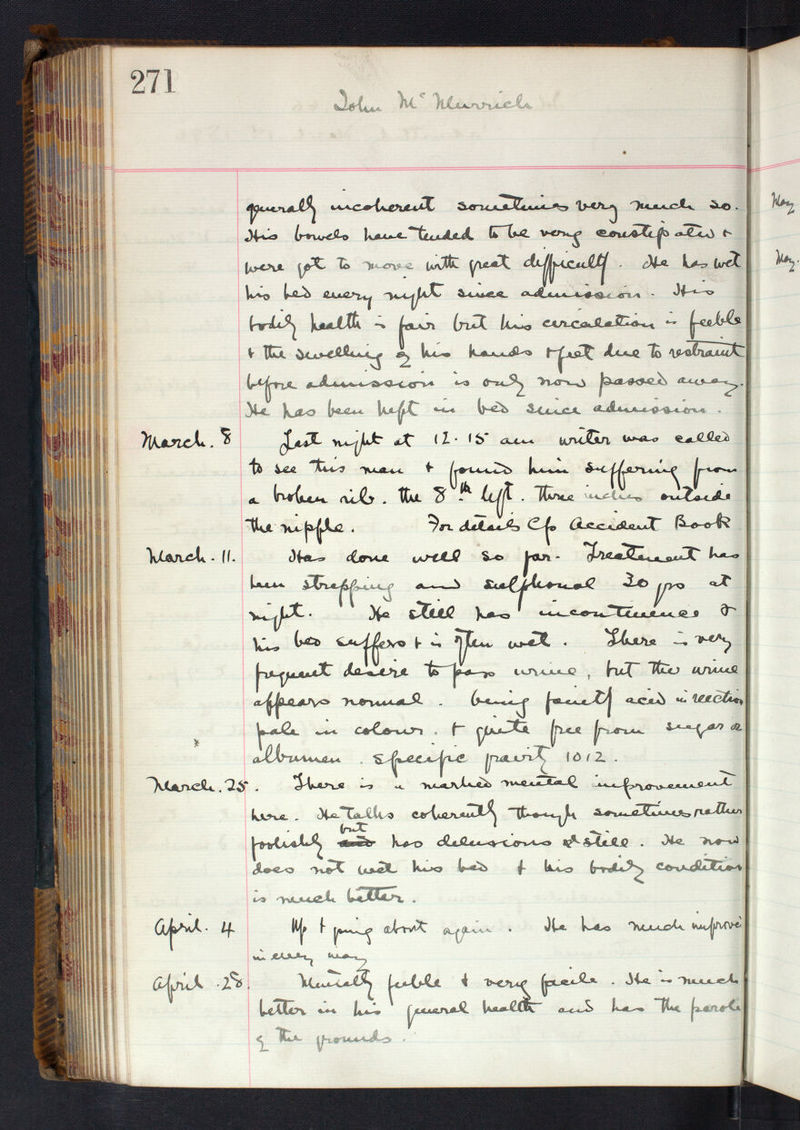 271
John Mc Murrich
generally incoherent sometimes very much so.
His bowels have tended to be very constipated &
were got to move with great difficulty. He has wet
his bed every night since admission. His
bodily health is fair but his circulation is feeble
& the swelling of his hands & feet due to restraint
before admission is only now passed away.
He has been kept in bed since admission.
March. 8 Last night at 12.15 am writer was called
to see this man & found him suffering from
a broken rib. the 8th left. three inches outside
the nipple. For details Cfs Accident Book
March. 11. Has done well so far. Treatment has
been strapping and sulphonal 30 grs at
night. He still has incontinence &
his bed suffers & is often wet. There is very
frequent desire to pass urine, but the urine
appears normal. being faintly acid in reaction
pale in colour. & quite free from sugar or
albumen. Specific gravity 1012.
March. 25. There is a marked mental improvement
here. He talks coherently though sometimes rather
foolishly and but has delusions still. He now
does not wet his bed & his bodily condition
is much better.
April. 4 Up & going about again. He has much improved
in every way
April. 28. Mentally feeble & very facile. He is much
better in his general health and has the parole
of the grounds.
May
May.